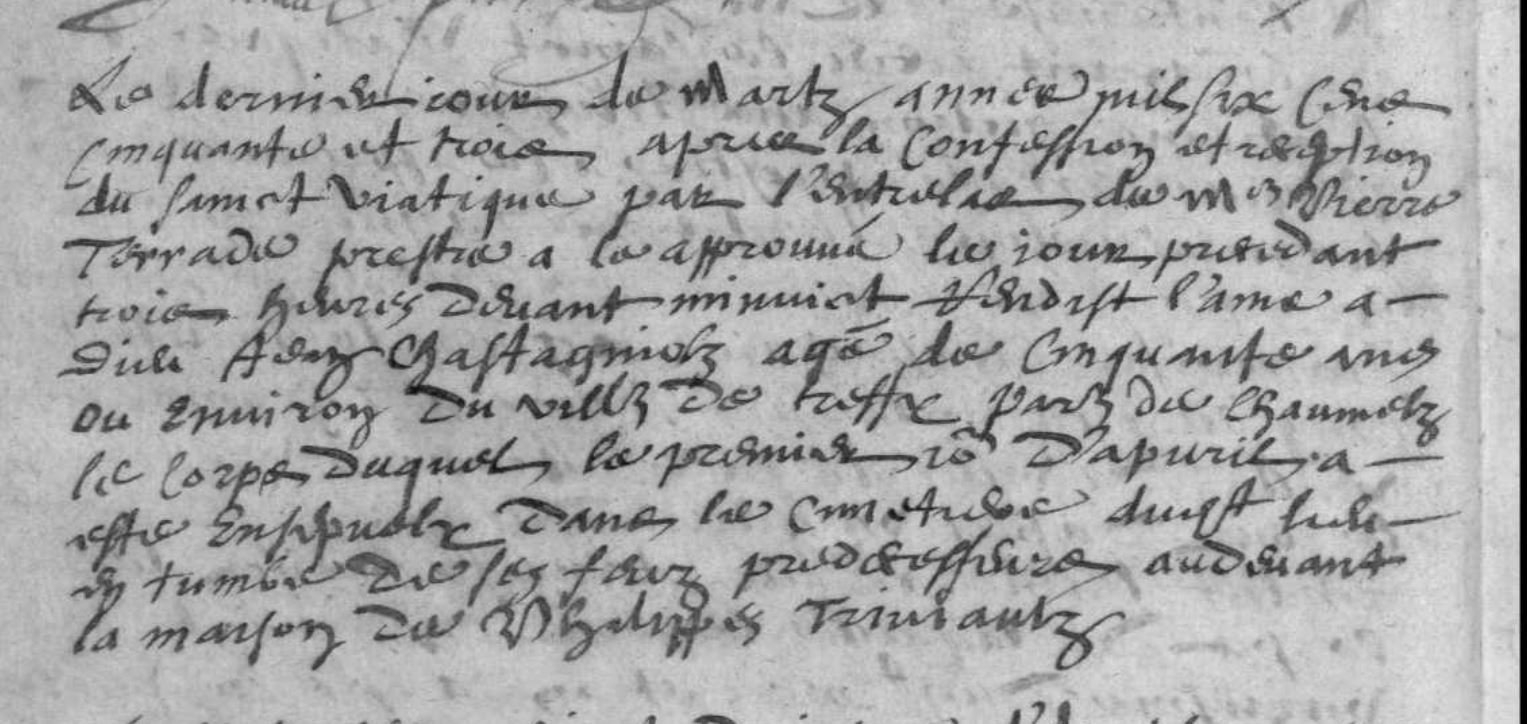 Le dernier jour de Martz annee mil six Cens
Cinquante et trois apres la Confession et reception
du sainct viatique par l'entrelas de Mre Pierre
Terrade prestre a ce approuvé le jour precedant
trois heures devant minuict Rendist l'ame a
Dieu Chastagniolz agé de Cinquante ans
ou Environ du villz de treffx parz de Chaumelz
le Corps duquel le premier jo D'apvril a
este Ensepvelx dans le Cimetiere dudist lieu
en tumbe de ses feuz predecesseurs audevant
la maison de Philippes